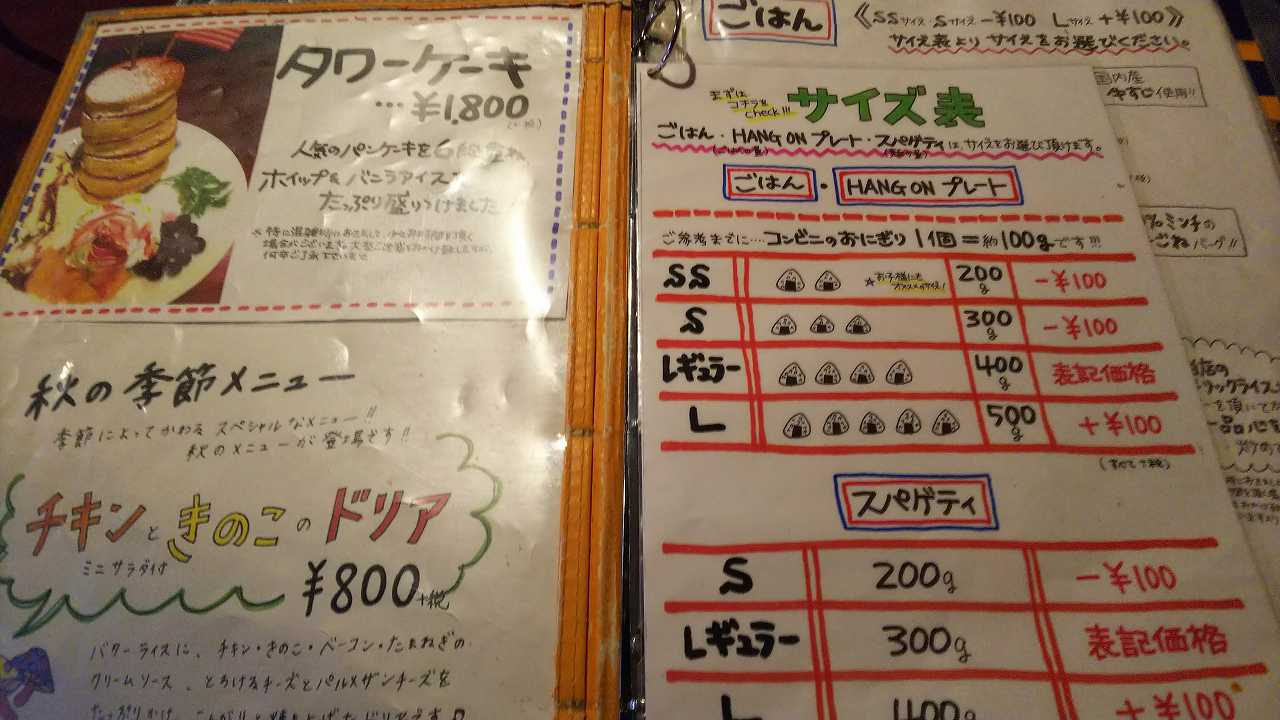 タワーケーキ
…¥1,800
(+税)
人気のパンケーキを6段重ね
ホイップ&バニラアイス
たっぷり盛りつけました
秋の季節メニュー
季節によってかわる スペシャルなメニュー!!
秋のメニューが登場です!!
チキンときのこのドリア
ミニサラダ付
¥800+税
バターライスに、チキン・きのこ・ベーコン・たまねぎの
クリームソース、とろけるチーズとパルメザンチーズを
ごはん
《SSサイズ・Sサイズ -¥100 Lサイズ +¥100》
サイズ表よりサイズをお選びください。
まずは
コチラを
check!!!
サイズ表
ごはん・HANG ONプレート・スパゲティは、サイズをお選び頂けます。
ごはん・HANG ONプレート
ご参考までに…コンビニのおにぎり1個=約100gです!!!
SS ☆お子様にも オススメのサイズ! 200g -¥100
S 300g -¥100
レギュラー 400g 表記価格
L 500g +¥100
(すべて+税)
スパゲティ
S 200g -¥100
レギュラー 300g 表記価格
L 400g +¥100
国内産
使用!!
%ミンチの
ごねバーグ!!